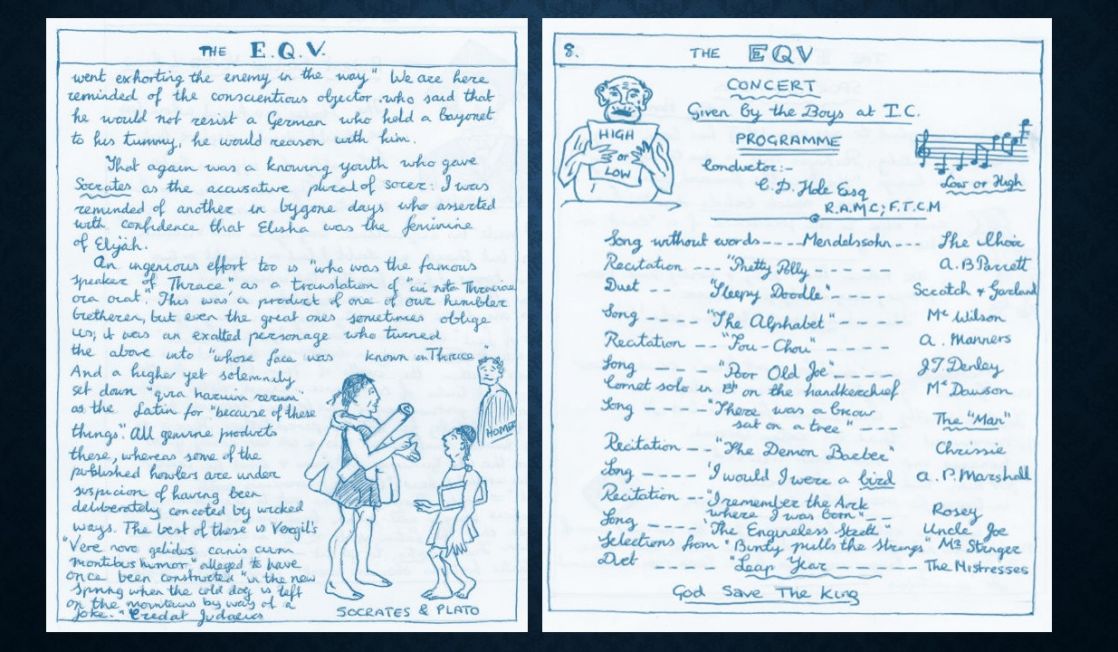 THE E.Q.V.
went exhorting the enemy in the way." We are here
reminded of the conscientious objector who said that
he would not resist a German who held a bayonet
to his tummy, he would reason with him.
That again was a knowing youth who gave
Socrates as the accusative plural of socer: I was
reminded of another in bygone days who asserted
with confidence that Elisha was the feminine
of Elijah.
An ingenious effort too is "who was the famous
speaker of Thrace" as a translation of "cui nota Thraciae
ora erat". This was a product of one of our humbler
bretheren, but even the great ones sometimes oblige
us; it was an exalted personage who turned
the above into "whose face was known in Thrace"
And a higher yet solemnly
set down "qua haruin rerum"
as the Latin for "because of these
things". All genuine products
these, whereas some of the
published howlers are under
suspicion of having been
deliberately concoted by wicked
ways. The best of these is Vergil's
"Vere novo gelidus canis cum
montibus humor" alleged to have
once been constructed "in the new
spring when the cold dog is left
on the mountains by way of a
joke." Credat Judaeus
HOMER
SOCRATES & PLATO
8. THE EQV
CONCERT
Given by the Boys at I.C.
PROGRAMME
HIGH
or
LOW
Conductor:-
C.D. Hole Esq
R.A.M.C; F.T.C.M
Low or High
Song without words --- Mendelssohn --- The Choir
Recitation --- "Pretty Polly ----- A.B Parrett
Duet -- "Sleepy Doodle" ---- Scratch & Garland
Song ---- "The Alphabet" ---- Mc Wilson
Recitation ---- "Pou-Chou" ---- A. Manners
Song ---- "Poor Old Joe" ---- J.T Denley
Cornet solo in Bb on the handkerchief Mc Dawson
Song ---- "There was a brow
sat on a tree" --- The "Man"
Recitation -- "The Demon Barber" Chrissie
Song ---- 'I would I were a bird A.P. Marshall
Recitation -- "I remember the Ark
where I was born" -- Rosey
Song ---- 'The Engineless Steed" Uncle Joe
Selections from "Bunty pulls the Strings" Mc Stringer
Duet ----- "Leap Year ---- The Mistresses
God Save The King